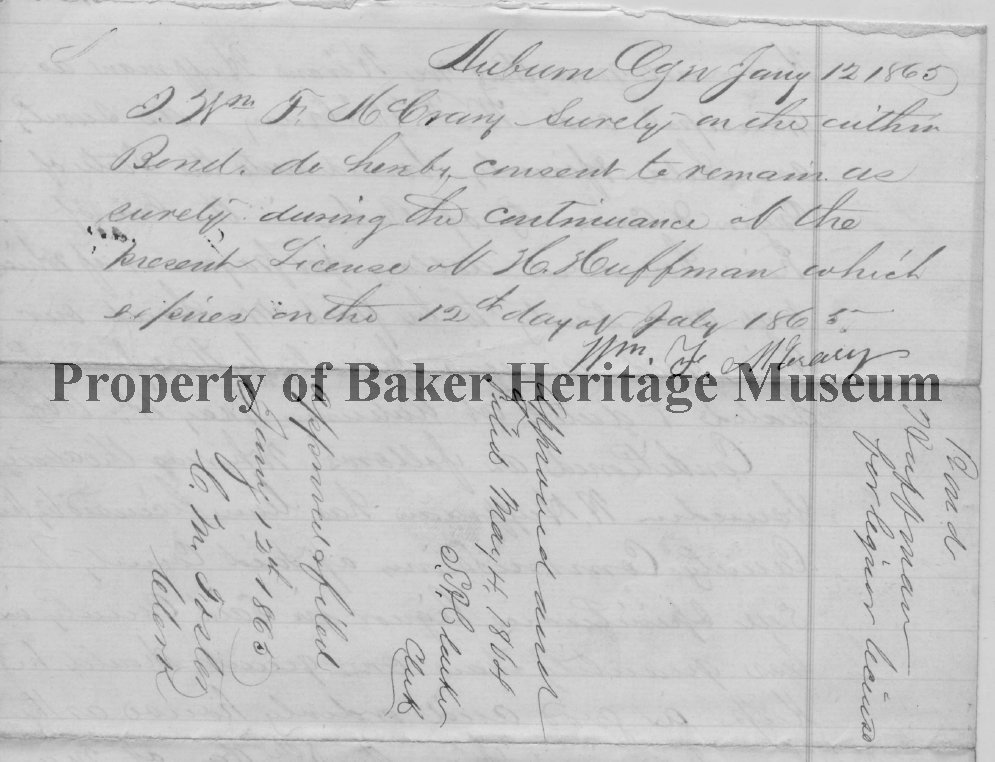 Auburn Ogn Jany 12 1865
I. Wm F. McCrary Surety on the within
Bond. do hereby consent to remain as
surety during the continuance of the
present License of H. Huffman which
expires on the 12th day of July 1865.
Wm. F. McCrary
Property of Baker Heritage Museum
Bond.
Huffman
for liquor license
Approved and
Filed May 4, 1864
Clerk
Approved & filed
Jany 12th 1865
C. M. Foster
Clerk